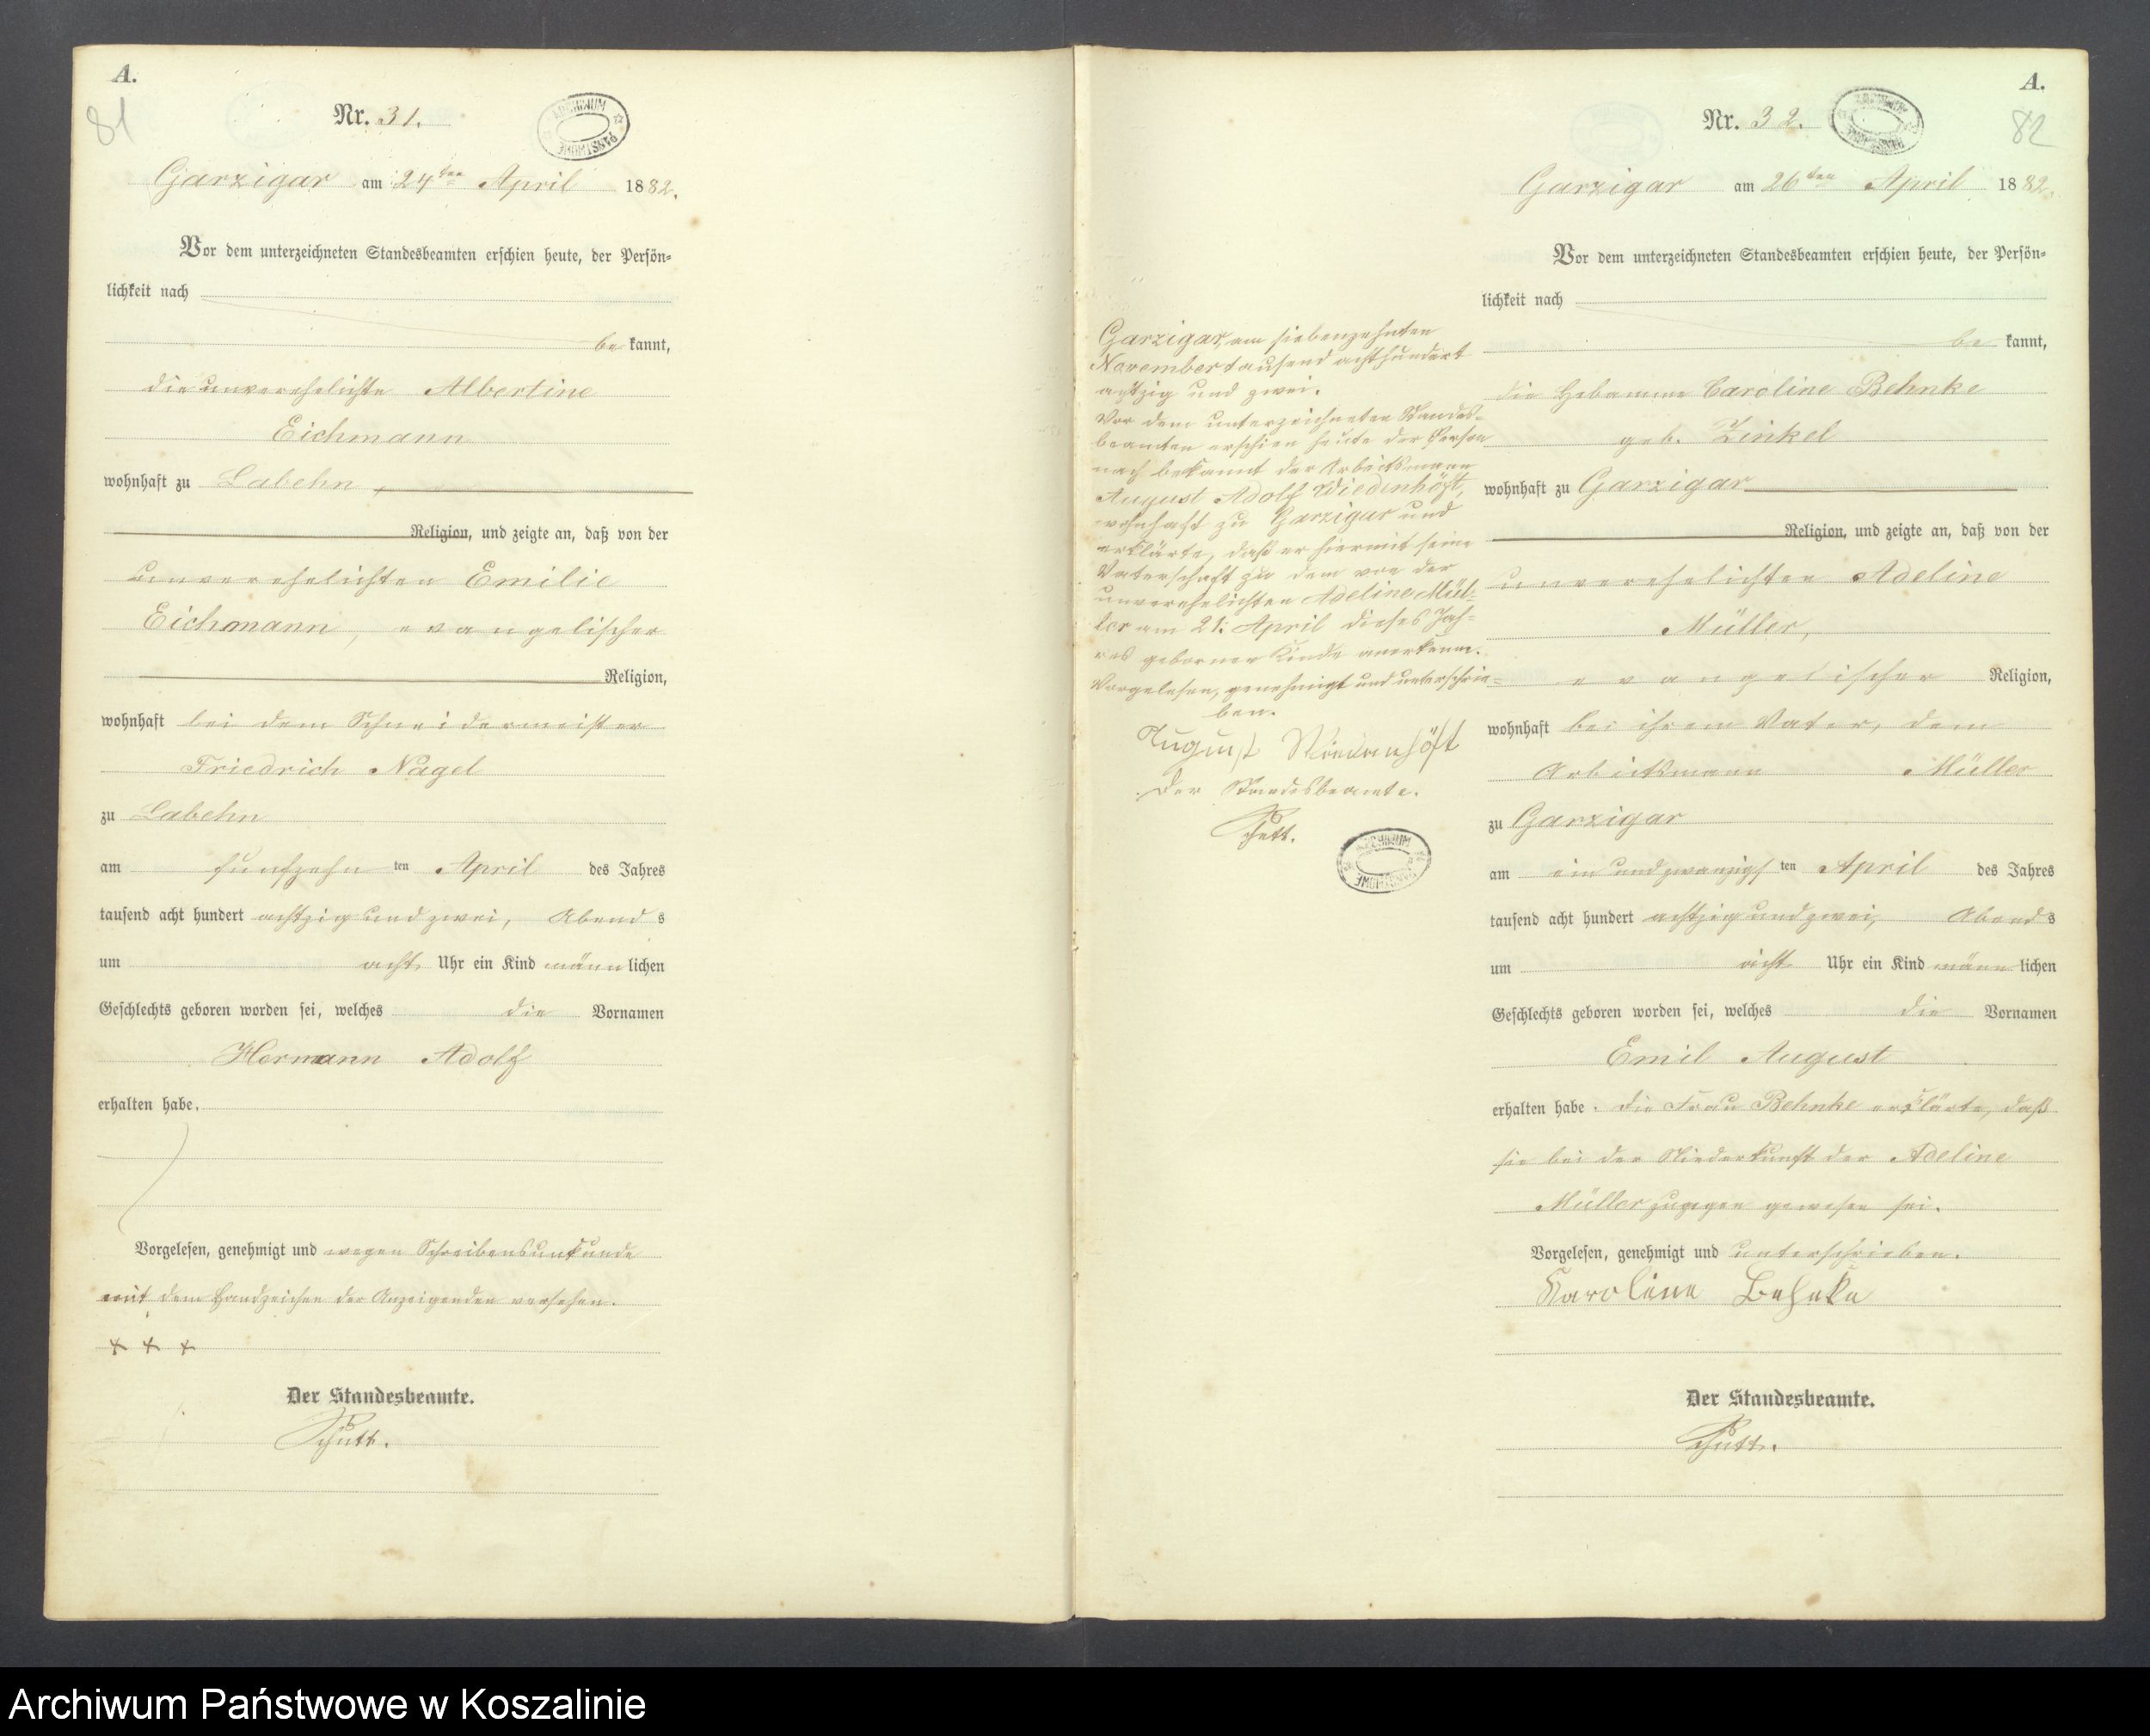 A.
81
Nr. 31.
ARCHIWUM PAŃSTWOWE
Garzigar am 24ten April 1882.
Vor dem unterzeichneten Standesbeamten erschien heute, der Persön-
lichkeit nach
be kannt,
die unverehelichte Albertine
Eichmann
wohnhaft zu Labehn,
Religion, und zeigte an, daß von der
unverehelichten Emilie
Eichmann, evangelischer
Religion,
wohnhaft bei dem Schneidermeister
Friedrich Nagel
zu Labehn
am funfzehn ten April des Jahres
tausend acht hundert achtzig und zwei, Abend s
um acht Uhr ein Kind männ lichen
Geschlechts geboren worden sei, welches die Vornamen
Hermann Adolf
erhalten habe.
Vorgelesen, genehmigt und wegen Schreibensunkunde
mit dem Handzeichen der Anzeigenden versehen.
+ + +
Der Standesbeamte.
Schütt.
Garzigar, am siebenzehnten
November tausend achthundert
achtzig und zwei.
Vor dem unterzeichneten Standes-
beamten erschien heute der Person
nach bekannt der Arbeitsmann
August Adolf Wiedenhöft,
wohnhaft zu Garzigar und
erklärte, daß er hiermit seine
Vaterschaft zu dem von der
unverehelichten Adeline Mül-
ler am 21. April dieses Jah-
res geborenen Kinde anerkenne.
Vorgelesen, genehmigt und unterschrie-
ben.
August Wiedenhöft
Der Standesbeamte.
Schütt.
ARCHIWUM PAŃSTWOWE
A.
82
Nr. 32.
ARCHIWUM PAŃSTWOWE
Garzigar am 26ten April 1882.
Vor dem unterzeichneten Standesbeamten erschien heute, der Persön-
lichkeit nach
be kannt,
die Hebamme Caroline Behnke
geb. Zinkel
wohnhaft zu Garzigar
Religion, und zeigte an, daß von der
unverehelichten Adeline
Müller,
evangelischer Religion,
wohnhaft bei ihrem Vater, dem
Arbeitsmann Müller
zu Garzigar
am ein und zwanzigs ten April des Jahres
tausend acht hundert achtzig und zwei, Abend s
um acht Uhr ein Kind männ lichen
Geschlechts geboren worden sei, welches die Vornamen
Emil August
erhalten habe. Die Frau Behnke erklärte, daß
sie bei der Niederkunft der Adeline
Müller zugegen gewesen sei.
Vorgelesen, genehmigt und unterschrieben.
Karoline Behnke
Der Standesbeamte.
Schütt.
Archiwum Państwowe w Koszalinie